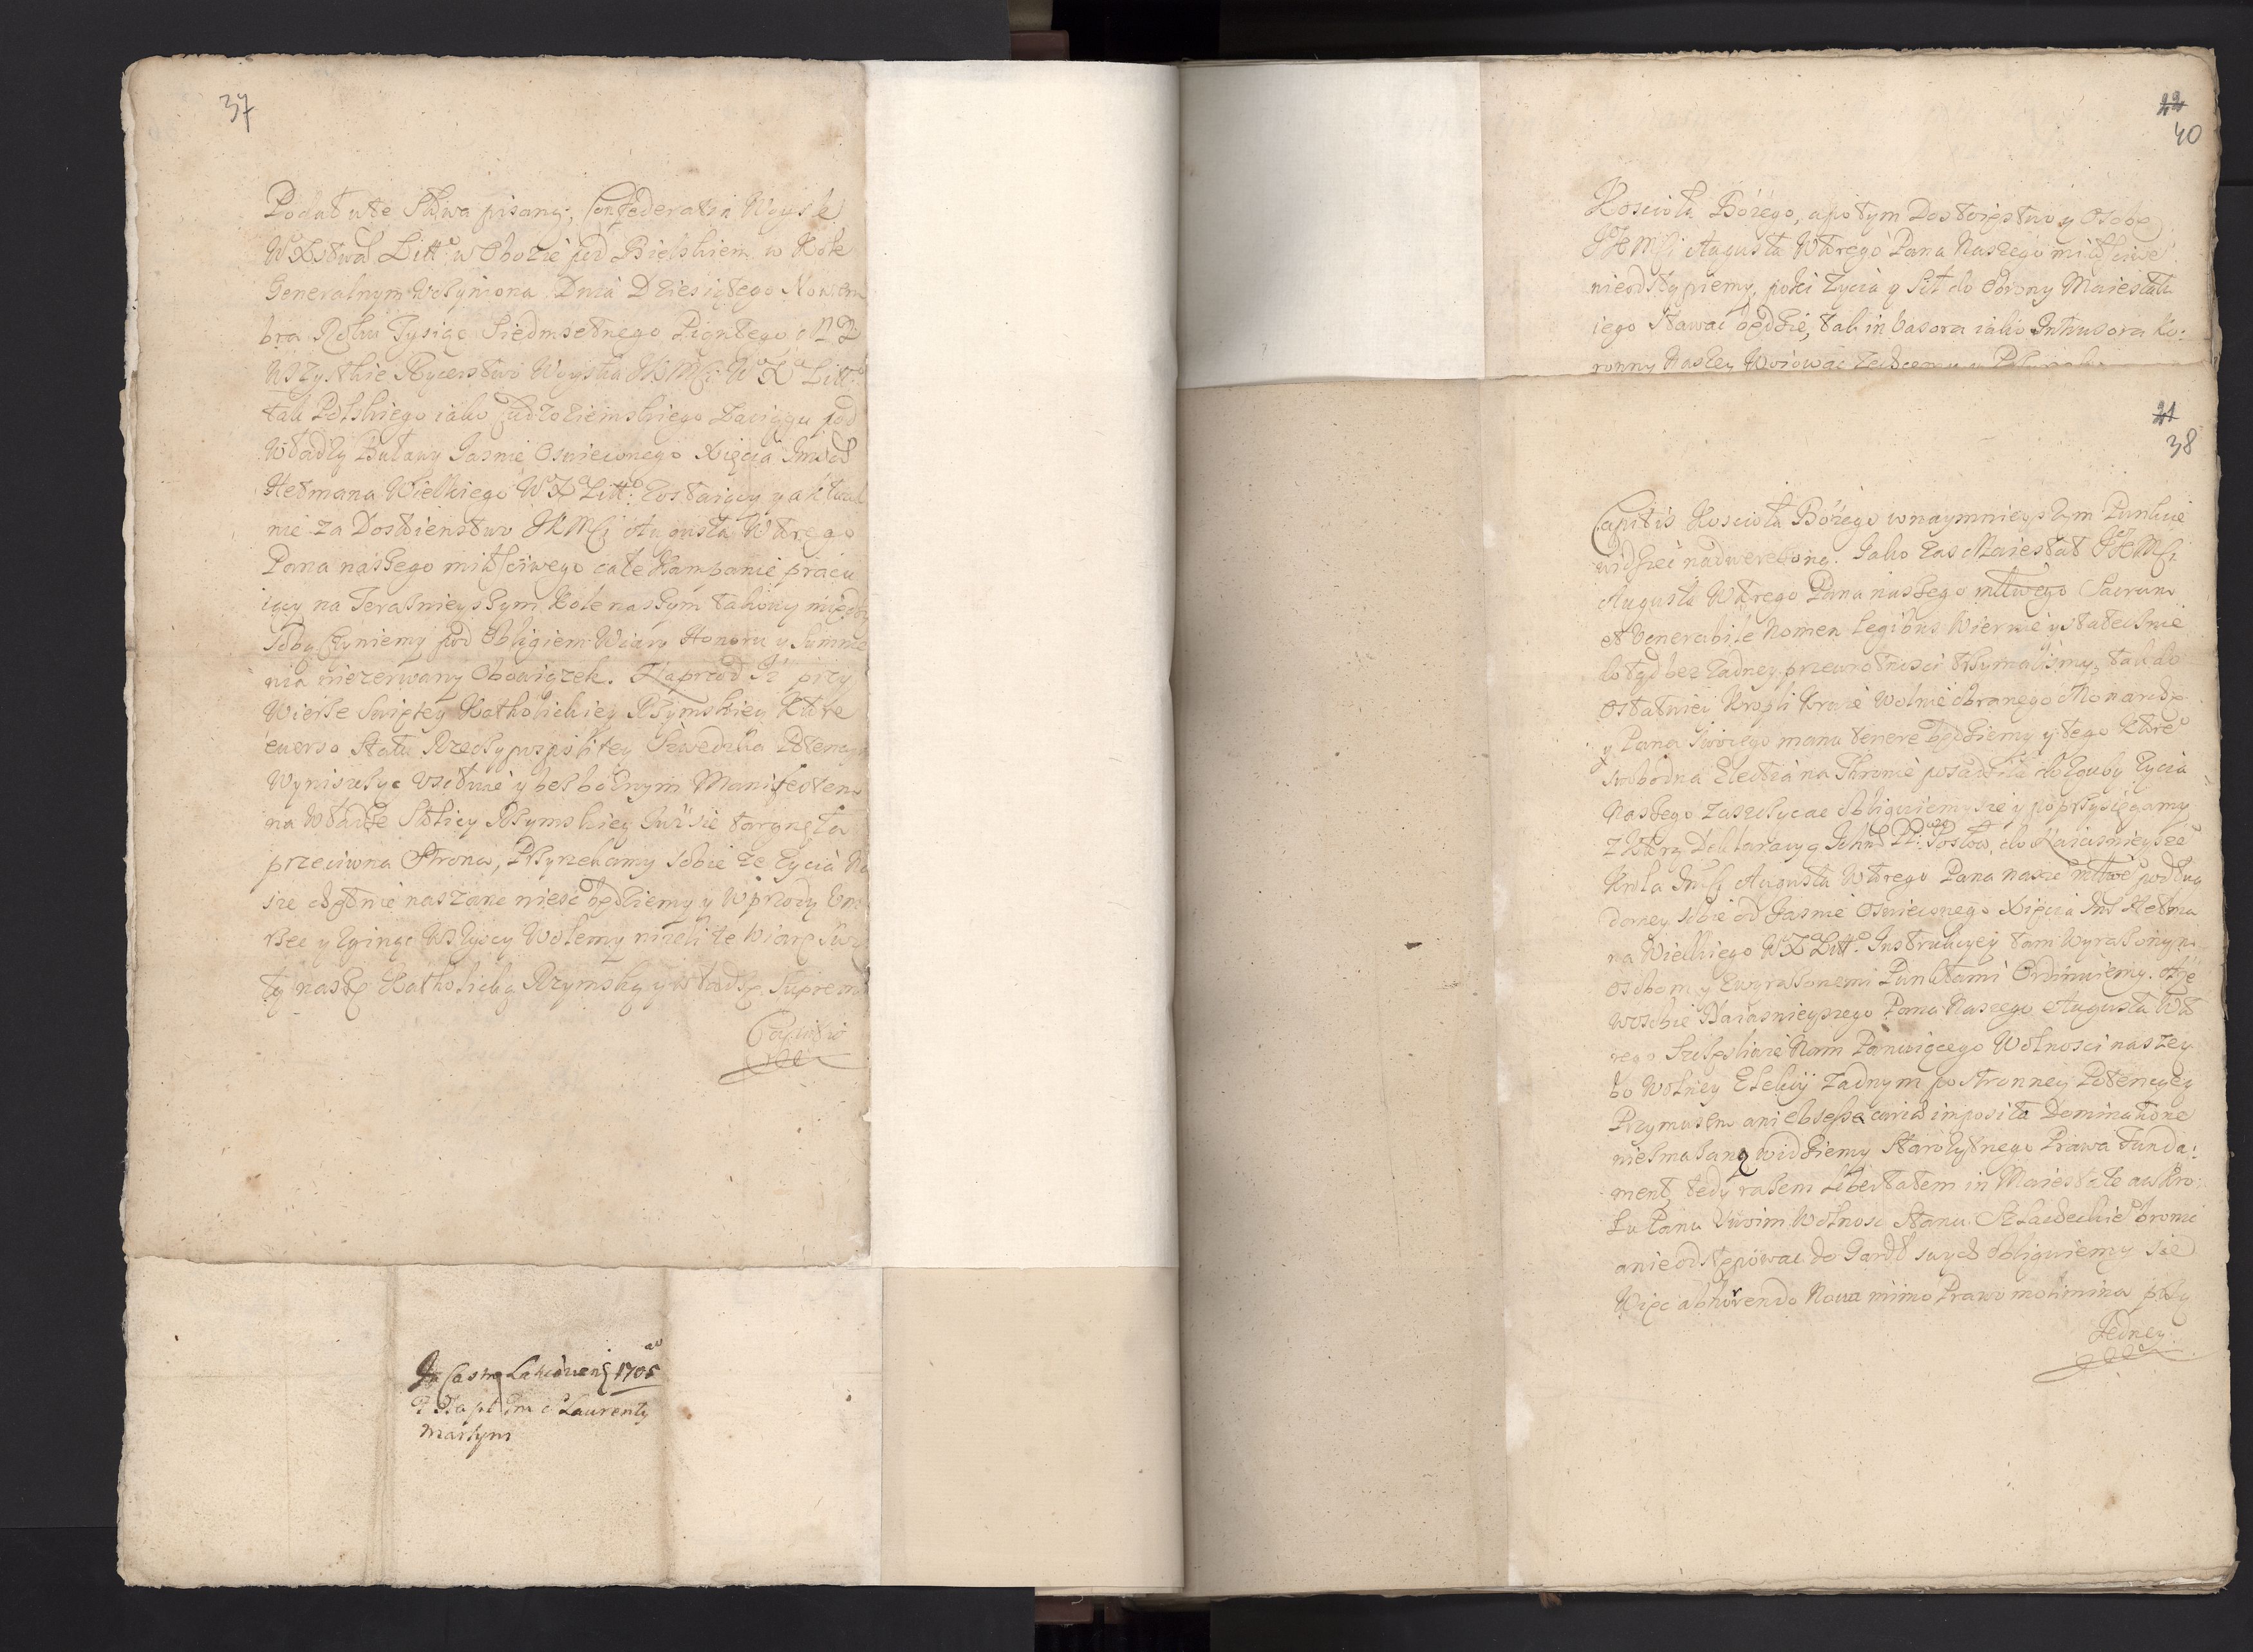 37
Podat ute Słowa pisany; Confederatia Woysk
WXstwa Litt° w Obozie pod Bielskiem w Kole
Generalnym Uczyniona Dnia Dziesiątego Novem
bra Roku Tysiąc Siedmsetnego Piątego
Wszystkie Rycerstwo Woyska JKMci WXLitt°
tak Polskiego iako Cudzoziemskiego Zaciągu pod
Władzą Buławy Jasnie Oswieconego Xięcia Jmści
Hetmana Wielkiego WXLitt° Zostaiący y aktual
nie za Dostoienstwo JKMci Augusta Wtorego
Pana naszego miłościwego całe Kampanie pracu
iący na Terazniejszym Kole naszym takowy między
Sobą czyniemy pod Obligiem Wiary Honoru y Sumnie
nia nierozerwany Obowiązek. Naprzod Iż przy
Wierze Swiętey Katholickiey Rzymskiey Ktore
everso Statu Rzeczypospolitey Szwedzka Potencya
Wyniszczyc Usiłuie y bezbożnym Manifestem
na Władze Stolicy Rzymskiey Tuż sie targnęła
przeciwna Strona, Przyrzekamy sobie że Życia Na
sze chętnie na szanc niesc będziemy y Wprzody Um
rzec y Zginąc Wszyscy Wolemy niżeli te Wiarę Swię
tą naszę Katholicką Rzymską y władzę Supremi
Capitis
In Castro Laticzoviens 1705
Martyni
22
40
Koscioła Bożego, a potym Dostoięstwo y Osobę
JKMCi Augusta Wtorego Pana Naszego miłościwe
nieodstąpiemy, poki życia y Sił do Obrony Maiestatu
iego Stawac będzie, tak invasora iako Intrusora Ko:
ronny Naszey Woiowac Zechcemy y
21
38
Capitis Koscioła Bożego w naymnieyszym Punkcie
widziec nadwerezoną. Jako zas Maiestat JKMCi
Augusta Wtorego Pana naszego młłwego Sacrum
et Venerabile Nomen Legibus Wiernie y statecznie
dotąd bez żadney przewrotnosci trzymalismy, tak do
Ostatniei Kropli Krwie Wolnie obranego Monarchę
y Pana Swoiego manu tenere będziemy y tego Ktore°
swobodna Electia na Thronie posadziła do Zguby Życia
Naszego Zaszczycac Obliguiemy sie y poprzysięgamy
Z Ktorą Deklaracyą Ichm PP. Posłow do Naiasnieysze°
Krola Jmści Augusta Wtorego Pana nasze° młłwe° podług
daney sobie od Jasnie Oswieconego Xięcia Jmś Hetma
na Wielkiego WXLitt° Instrukcyey tam Wyrazonym
osobom y Zwyrazonemi Punktami Ordinuiemy. A że
w osobie Naiasnieyszego Pana Naszego Augusta Wto
rego Szczęsliwie Nam Panuiącego Wolnosci naszey
bo Wolney Elekcij żadnym postronney Potencyey
Przymusem ani obsessa curia imposita Dominatione
niezmazaną widziemy Starożytnego Prawa Funda:
ment, tedy razem Libertatem in Maiestate a w Kro:
lu Panu Swoim Wolnosc Stanu Szlacheckie° bronic
a nie odstępowac do Gardł swych obliguiemy sie
Więc abhorrendo Nova mimo Prawo molimina przy
Jedney